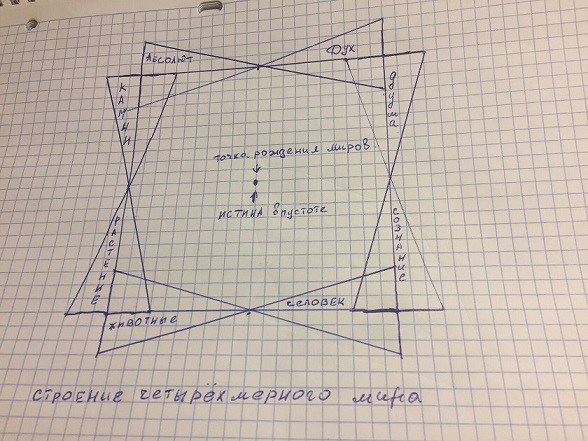 АБСОЛЮТ
ДУХ
КАМНИ
душа
точка рождения миров
ИСТИНА в пустоте
РАСТЕНИЕ
СОЗНАНИЕ
животные
человек
строение четырёхмерного мира